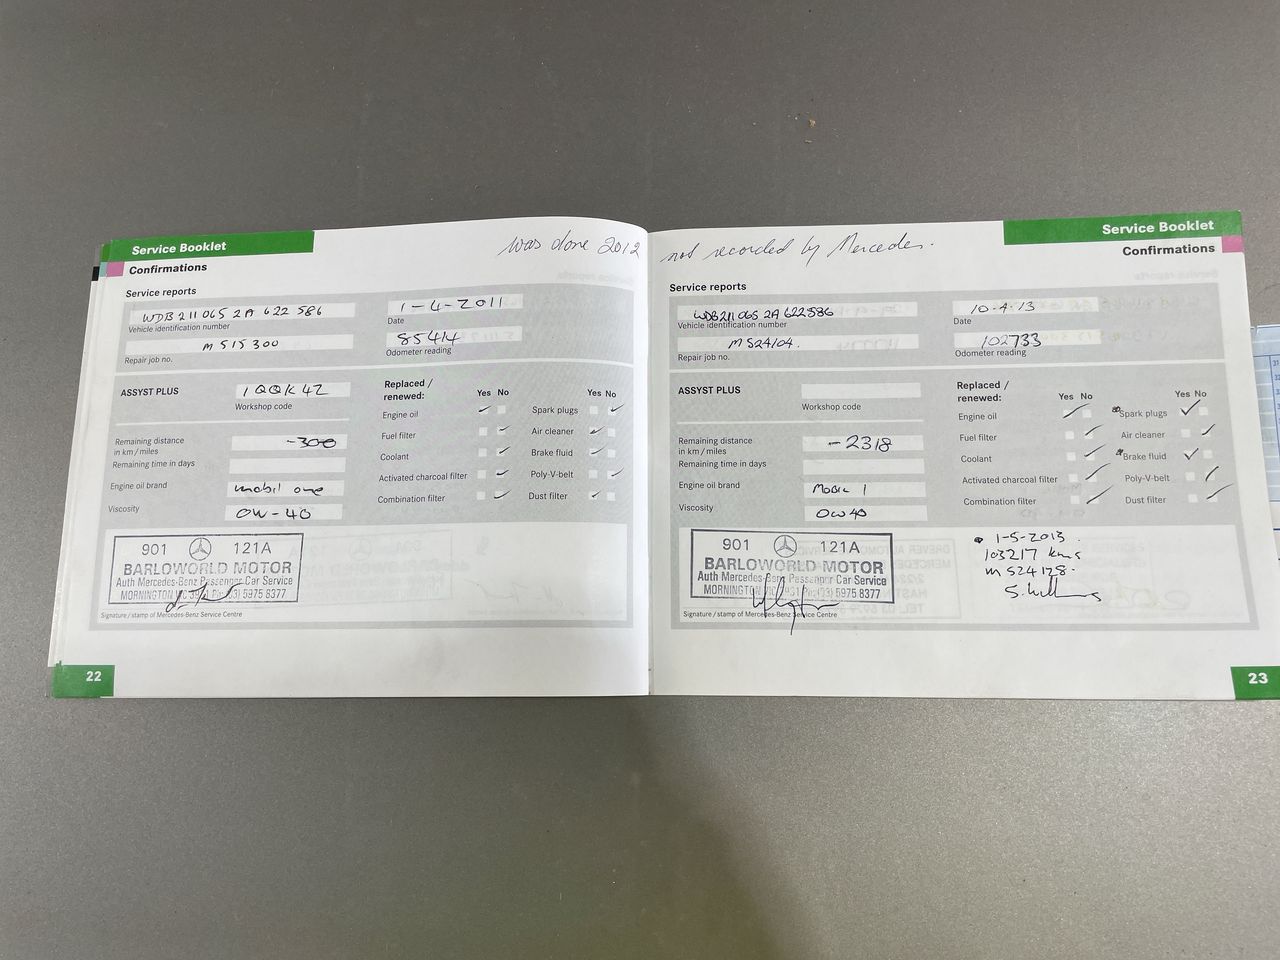 Service Booklet
Confirmations
was done 2012
Service reports
WDB 211 065 2A 622 586
Vehicle identification number
1-4-2011
Date
M 515 300
Repair job no.
85414
Odometer reading
ASSYST PLUS
1QQK4Z
Workshop code
Replaced /
renewed:
Yes No
Yes No
Engine oil
Spark plugs
Fuel filter
Air cleaner
Coolant
Brake fluid
Activated charcoal filter
Poly-V-belt
Combination filter
Dust filter
Remaining distance
in km / miles
-300
Remaining time in days
Engine oil brand
mobil one
Viscosity
0W-40
901 121A
BARLOWORLD MOTOR
Auth Mercedes-Benz Passenger Car Service
MORNINGTON VIC 3931 Ph: (03) 5975 8377
Signature / stamp of Mercedes-Benz Service Centre
22
Service Booklet
Confirmations
not recorded by Mercedes.
Service reports
WDB211 065 2A 622586
Vehicle identification number
10.4.13
Date
M 524104.
Repair job no.
102733
Odometer reading
ASSYST PLUS
Workshop code
Replaced /
renewed:
Yes No
Yes No
Engine oil
Spark plugs
Fuel filter
Air cleaner
Coolant
Brake fluid
Activated charcoal filter
Poly-V-belt
Combination filter
Dust filter
Remaining distance
in km / miles
-2318
Remaining time in days
Engine oil brand
Mobil 1
Viscosity
0W40
901 121A
BARLOWORLD MOTOR
Auth Mercedes-Benz Passenger Car Service
MORNINGTON VIC 3931 Ph: (03) 5975 8377
Signature / stamp of Mercedes-Benz Service Centre
1-5-2013.
103217 kms
M 524178.
23